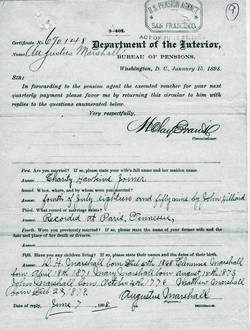 U.S. PENSION AGENCY
SAN FRANCISCO
9
3-402.
Certificate No. 670.148
Name, Augustus Marshall
Department of the Interior,
BUREAU OF PENSIONS,
Washington, D. C., January 15, 1898.
SIR:
In forwarding to the pension agent the executed voucher for your next
quarterly payment please favor me by returning this circular to him with
replies to the questions enumerated below.
Very respectfully,
H. Clay Evans
Commissioner.
First. Are you married? If so, please state your wife's full name and her maiden name.
Answer. Charity Hawkins Joiner
Second. When, where, and by whom were you married?
Answer. fourth of July Eighteen and fifty nine by John
Third. What record of marriage exists?
Answer. Recorded at Paris, Tennessee
Fourth. Were you previously married? If so, please state the name of your former wife and the
date and place of her death or divorce.
Answer.
Fifth. Have you any children living? If so, please state their names and the dates of their birth.
Answer. Marshall born 1868 Marshall
born April 18th 1871 Mary Marshall born august 18th 1873
John Marshall born October 4th 1776 Matthew Marshall
born 23 1879.
Augustus Marshall
Date of reply, June 7, 1898